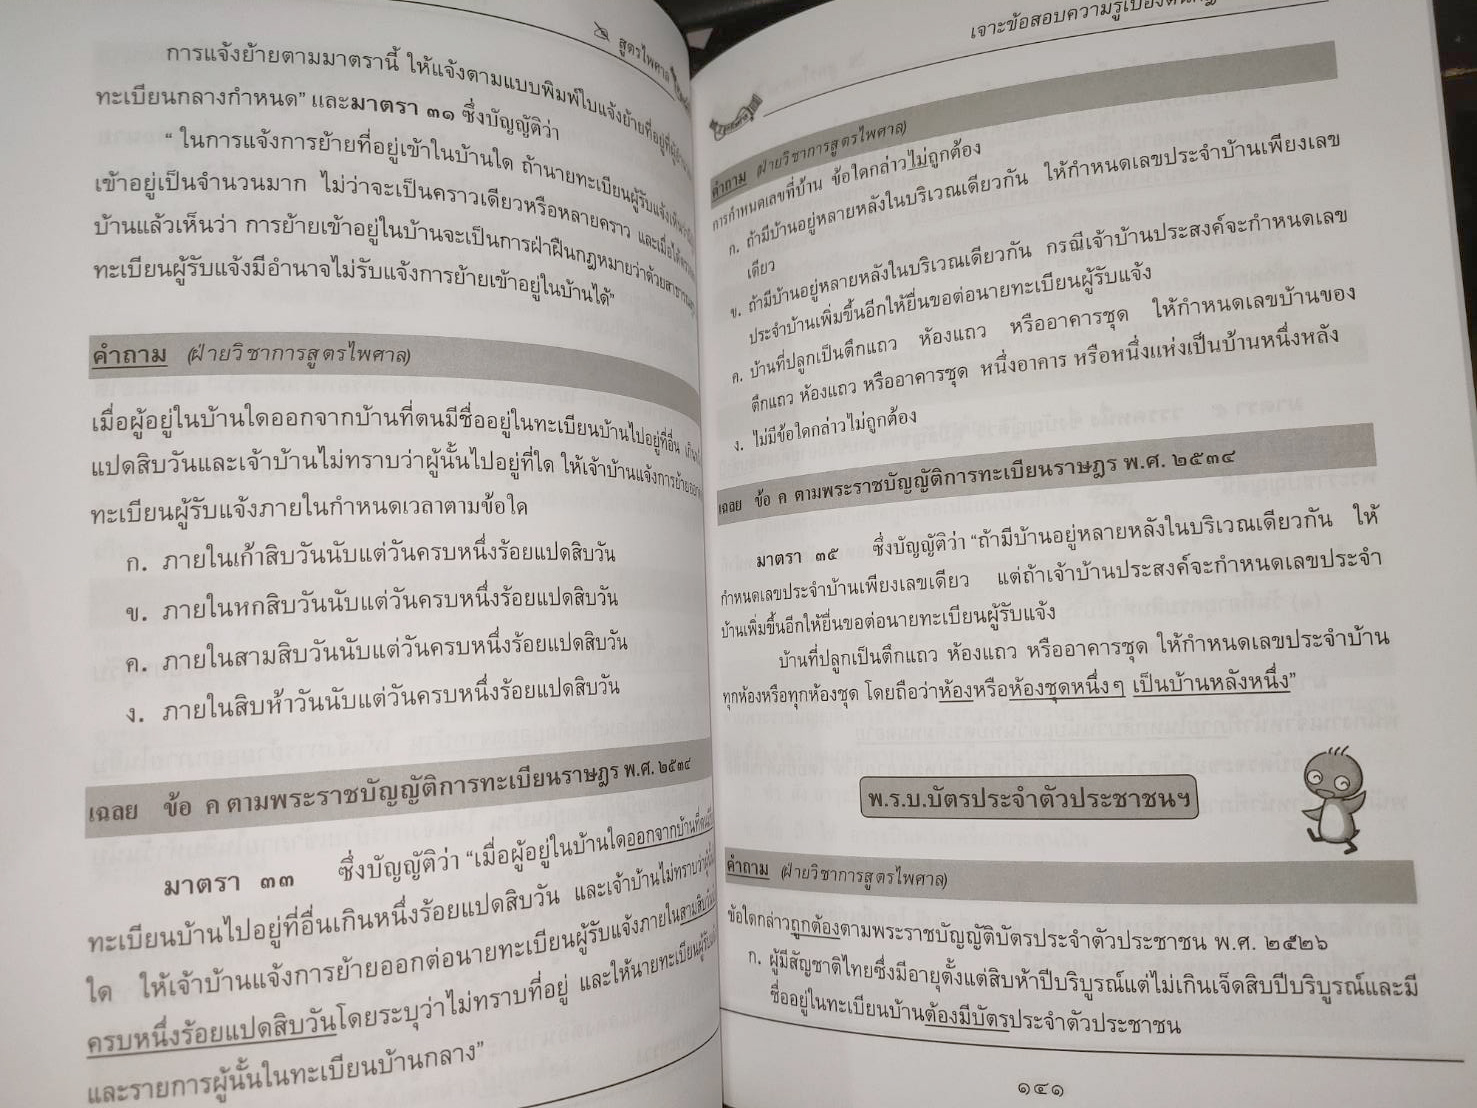 สูตรไพศาล
การแจ้งย้ายตามมาตรานี้ ให้แจ้งตามแบบพิมพ์ใบแจ้งย้ายที่อยู่ที่
ทะเบียนกลางกำหนด” และมาตรา ๓๑ ซึ่งบัญญัติว่า
“ ในการแจ้งการย้ายที่อยู่เข้าในบ้านใด ถ้านายทะเบียนผู้รับแจ้งเห็นว่า
เข้าอยู่เป็นจำนวนมาก ไม่ว่าจะเป็นคราวเดียวหรือหลายคราว และเมื่อได้
บ้านแล้วเห็นว่า การย้ายเข้าอยู่ในบ้านจะเป็นการฝ่าฝืนกฎหมายว่าด้วยสาธารณสุข
ทะเบียนผู้รับแจ้งมีอำนาจไม่รับแจ้งการย้ายเข้าอยู่ในบ้านได้”
คำถาม (ฝ่ายวิชาการสูตรไพศาล)
เมื่อผู้อยู่ในบ้านใดออกจากบ้านที่ตนมีชื่ออยู่ในทะเบียนบ้านไปอยู่ที่อื่น
แปดสิบวันและเจ้าบ้านไม่ทราบว่าผู้นั้นไปอยู่ที่ใด ให้เจ้าบ้านแจ้งการย้ายออก
ทะเบียนผู้รับแจ้งภายในกำหนดเวลาตามข้อใด
ก. ภายในเก้าสิบวันนับแต่วันครบหนึ่งร้อยแปดสิบวัน
ข. ภายในหกสิบวันนับแต่วันครบหนึ่งร้อยแปดสิบวัน
ค. ภายในสามสิบวันนับแต่วันครบหนึ่งร้อยแปดสิบวัน
ง. ภายในสิบห้าวันนับแต่วันครบหนึ่งร้อยแปดสิบวัน
เฉลย ข้อ ค ตามพระราชบัญญัติการทะเบียนราษฎร พ.ศ. ๒๕๓๔
มาตรา ๓๓ ซึ่งบัญญัติว่า “เมื่อผู้อยู่ในบ้านใดออกจากบ้านที่ตนมี
ทะเบียนบ้านไปอยู่ที่อื่นเกินหนึ่งร้อยแปดสิบวัน และเจ้าบ้านไม่ทราบว่าผู้นั้น
ใด ให้เจ้าบ้านแจ้งการย้ายออกต่อนายทะเบียนผู้รับแจ้งภายในสามสิบวัน
ครบหนึ่งร้อยแปดสิบวันโดยระบุว่าไม่ทราบที่อยู่ และให้นายทะเบียนผู้รับแจ้ง
และรายการผู้นั้นในทะเบียนบ้านกลาง”
เจาะข้อสอบความรู้เบื้องต้น
คำถาม (ฝ่ายวิชาการสูตรไพศาล)
การกำหนดเลขที่บ้าน ข้อใดกล่าวไม่ถูกต้อง
ก. ถ้ามีบ้านอยู่หลายหลังในบริเวณเดียวกัน ให้กำหนดเลขประจำบ้านเพียงเลข
เดียว
ข. ถ้ามีบ้านอยู่หลายหลังในบริเวณเดียวกัน กรณีเจ้าบ้านประสงค์จะกำหนดเลข
ประจำบ้านเพิ่มขึ้นอีกให้ยื่นขอต่อนายทะเบียนผู้รับแจ้ง
ค. บ้านที่ปลูกเป็นตึกแถว ห้องแถว หรืออาคารชุด ให้กำหนดเลขบ้านของ
ตึกแถว ห้องแถว หรืออาคารชุด หนึ่งอาคาร หรือหนึ่งแห่งเป็นบ้านหนึ่งหลัง
ง. ไม่มีข้อใดกล่าวไม่ถูกต้อง
เฉลย ข้อ ค ตามพระราชบัญญัติการทะเบียนราษฎร พ.ศ. ๒๕๓๔
มาตรา ๓๕ ซึ่งบัญญัติว่า “ถ้ามีบ้านอยู่หลายหลังในบริเวณเดียวกัน ให้
กำหนดเลขประจำบ้านเพียงเลขเดียว แต่ถ้าเจ้าบ้านประสงค์จะกำหนดเลขประจำ
บ้านเพิ่มขึ้นอีกให้ยื่นขอต่อนายทะเบียนผู้รับแจ้ง
บ้านที่ปลูกเป็นตึกแถว ห้องแถว หรืออาคารชุด ให้กำหนดเลขประจำบ้าน
ทุกห้องหรือทุกห้องชุด โดยถือว่าห้องหรือห้องชุดหนึ่งๆ เป็นบ้านหลังหนึ่ง”
พ.ร.บ.บัตรประจำตัวประชาชนฯ
คำถาม (ฝ่ายวิชาการสูตรไพศาล)
ข้อใดกล่าวถูกต้องตามพระราชบัญญัติบัตรประจำตัวประชาชน พ.ศ. ๒๕๒๖
ก. ผู้มีสัญชาติไทยซึ่งมีอายุตั้งแต่สิบห้าปีบริบูรณ์แต่ไม่เกินเจ็ดสิบปีบริบูรณ์และมี
ชื่ออยู่ในทะเบียนบ้านต้องมีบัตรประจำตัวประชาชน
๑๔๑